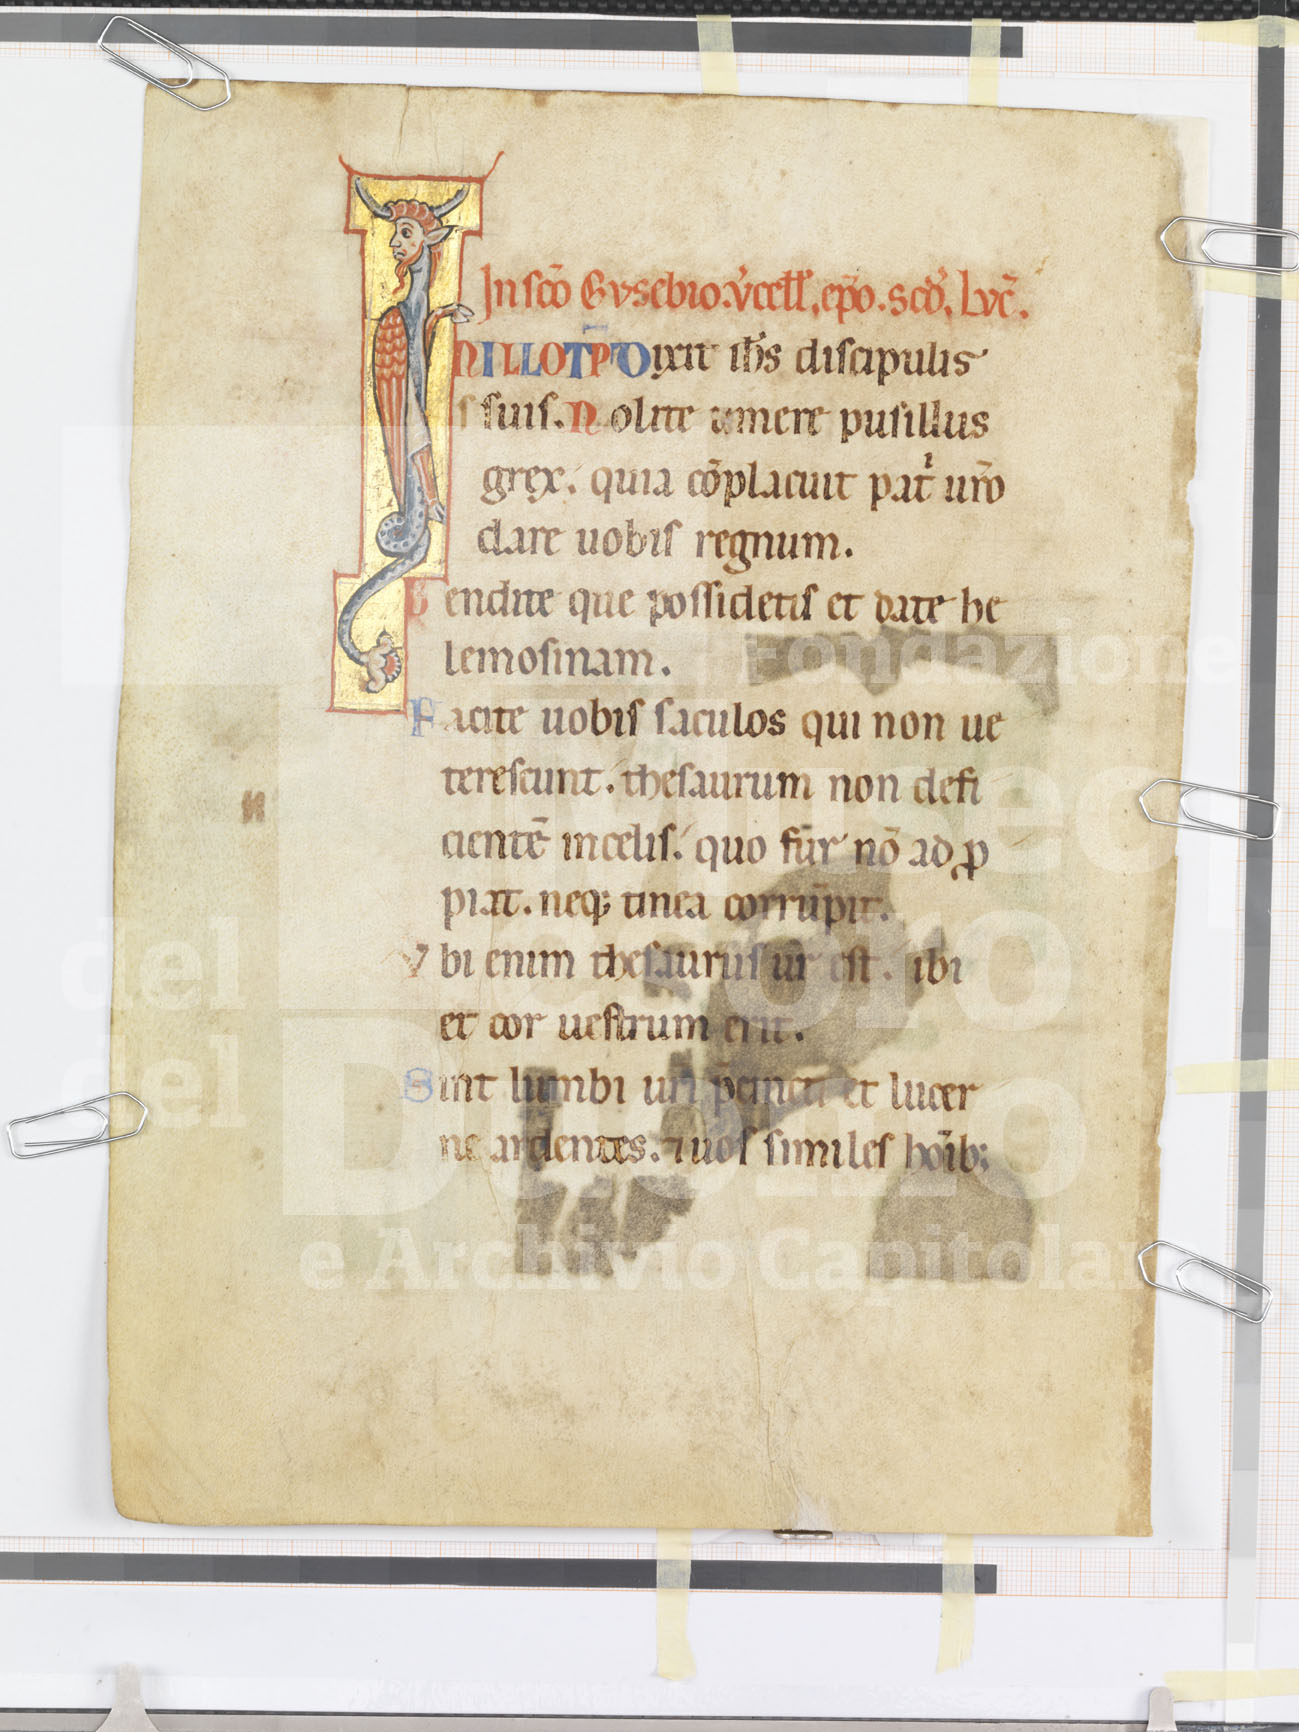 In sc̄o Evsebio. v̓cell̓. ep̄o. scd̓. Lvc̄.
IN ILLO T̄P Dixit ih̄s discipulis
suis. Nolite timere pusillus
grex. quia cōplacuit patⁱ ur̄o
dare uobis regnum.
Vendite que possidetis et date he
lemosinam.
Facite uobis saculos qui non ue
terescunt. thesaurum non defi
cientē in celis. quo fur nō ad ꝓ
piat. neq; tinea corrūpit.
Vbi enim thesaurus ur̄ est. ibi
et cor uestrum erit.
Sint lumbi uri p̄cincti et lucer
ne ardentes. ⁊ uos similes hoīb;
Fondazione
Musei
del Tesoro
del Duomo
e Archivio Capitolare